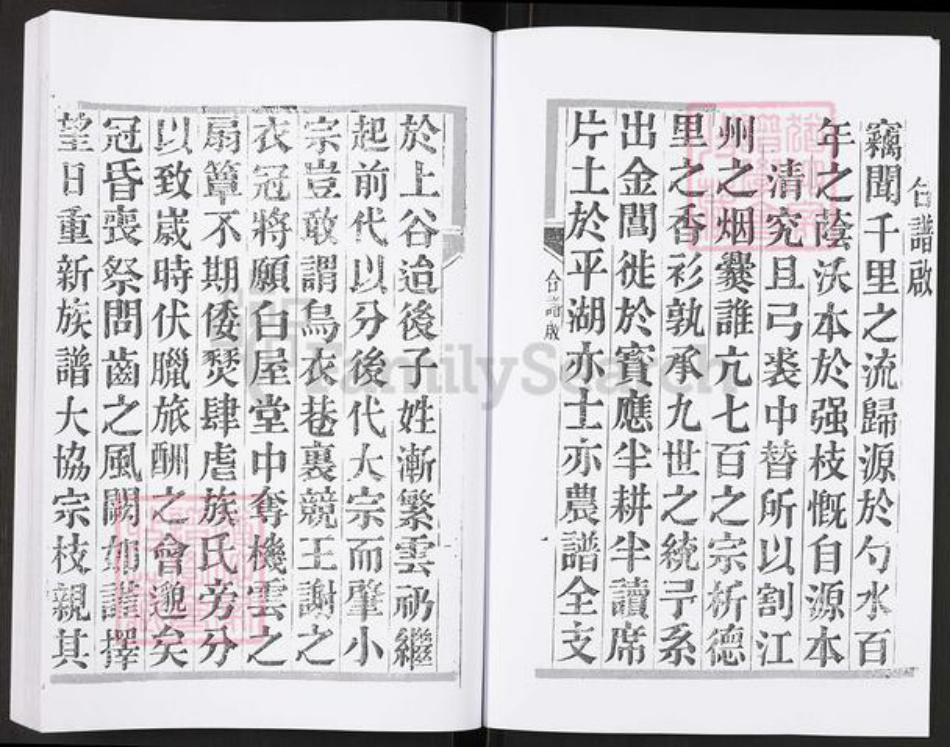 合譜啟
竊聞千里之流歸源於勺水百
年之蔭沃本於强枝慨自源本
清究且弓裘中替所以割江
州之烟爨誰亢七百之宗析德
里之香衫孰承九世之統予系
出金閶徙於賓應半耕半讀席
片土於平湖亦士亦農譜全支
合譜啟
於上谷迨後子姓漸繁雲礽繼
起前代以分後代大宗而肇小
宗豈敢謂烏衣巷裏競王謝之
衣冠將願白屋堂中奪機雲之
扇簟不期倭燹肆虐族氏旁分
以致歲時伏臘旅酬之會邈矣
冠昏喪祭問齒之風闕如謹擇
望日重新族譜大協宗枝親其
FamilySearch